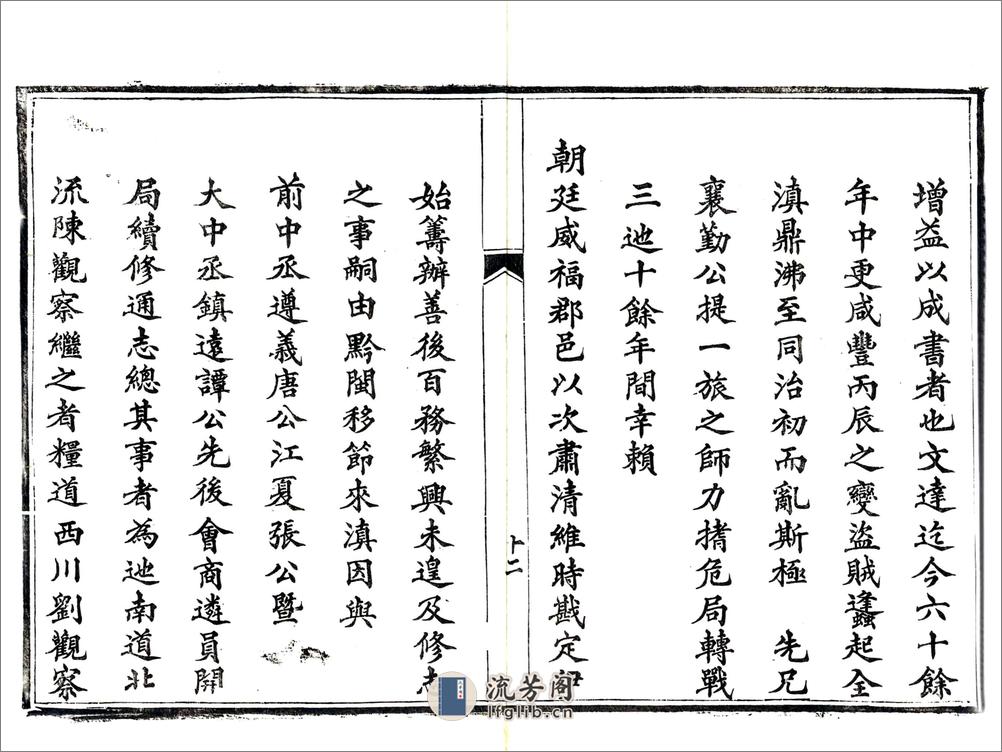 增益以成書者也文達迄今六十餘
年中更咸豐丙辰之變盜賊蠭起全
滇鼎沸至同治初而亂斯極　先兄
襄勤公提一旅之師力搘危局轉戰
三迆十餘年間幸賴
朝廷威福郡邑以次肅清維時戡定
始籌辦善後百務繁興未遑及修志
之事嗣由黔閩移節來滇因與
前中丞遵義唐公江夏張公暨
大中丞鎮遠譚公先後會商遴員開
局續修通志總其事者為迆南道北
流陳觀察繼之者糧道西川劉觀察
十二
流芳阁
lfglib.cn